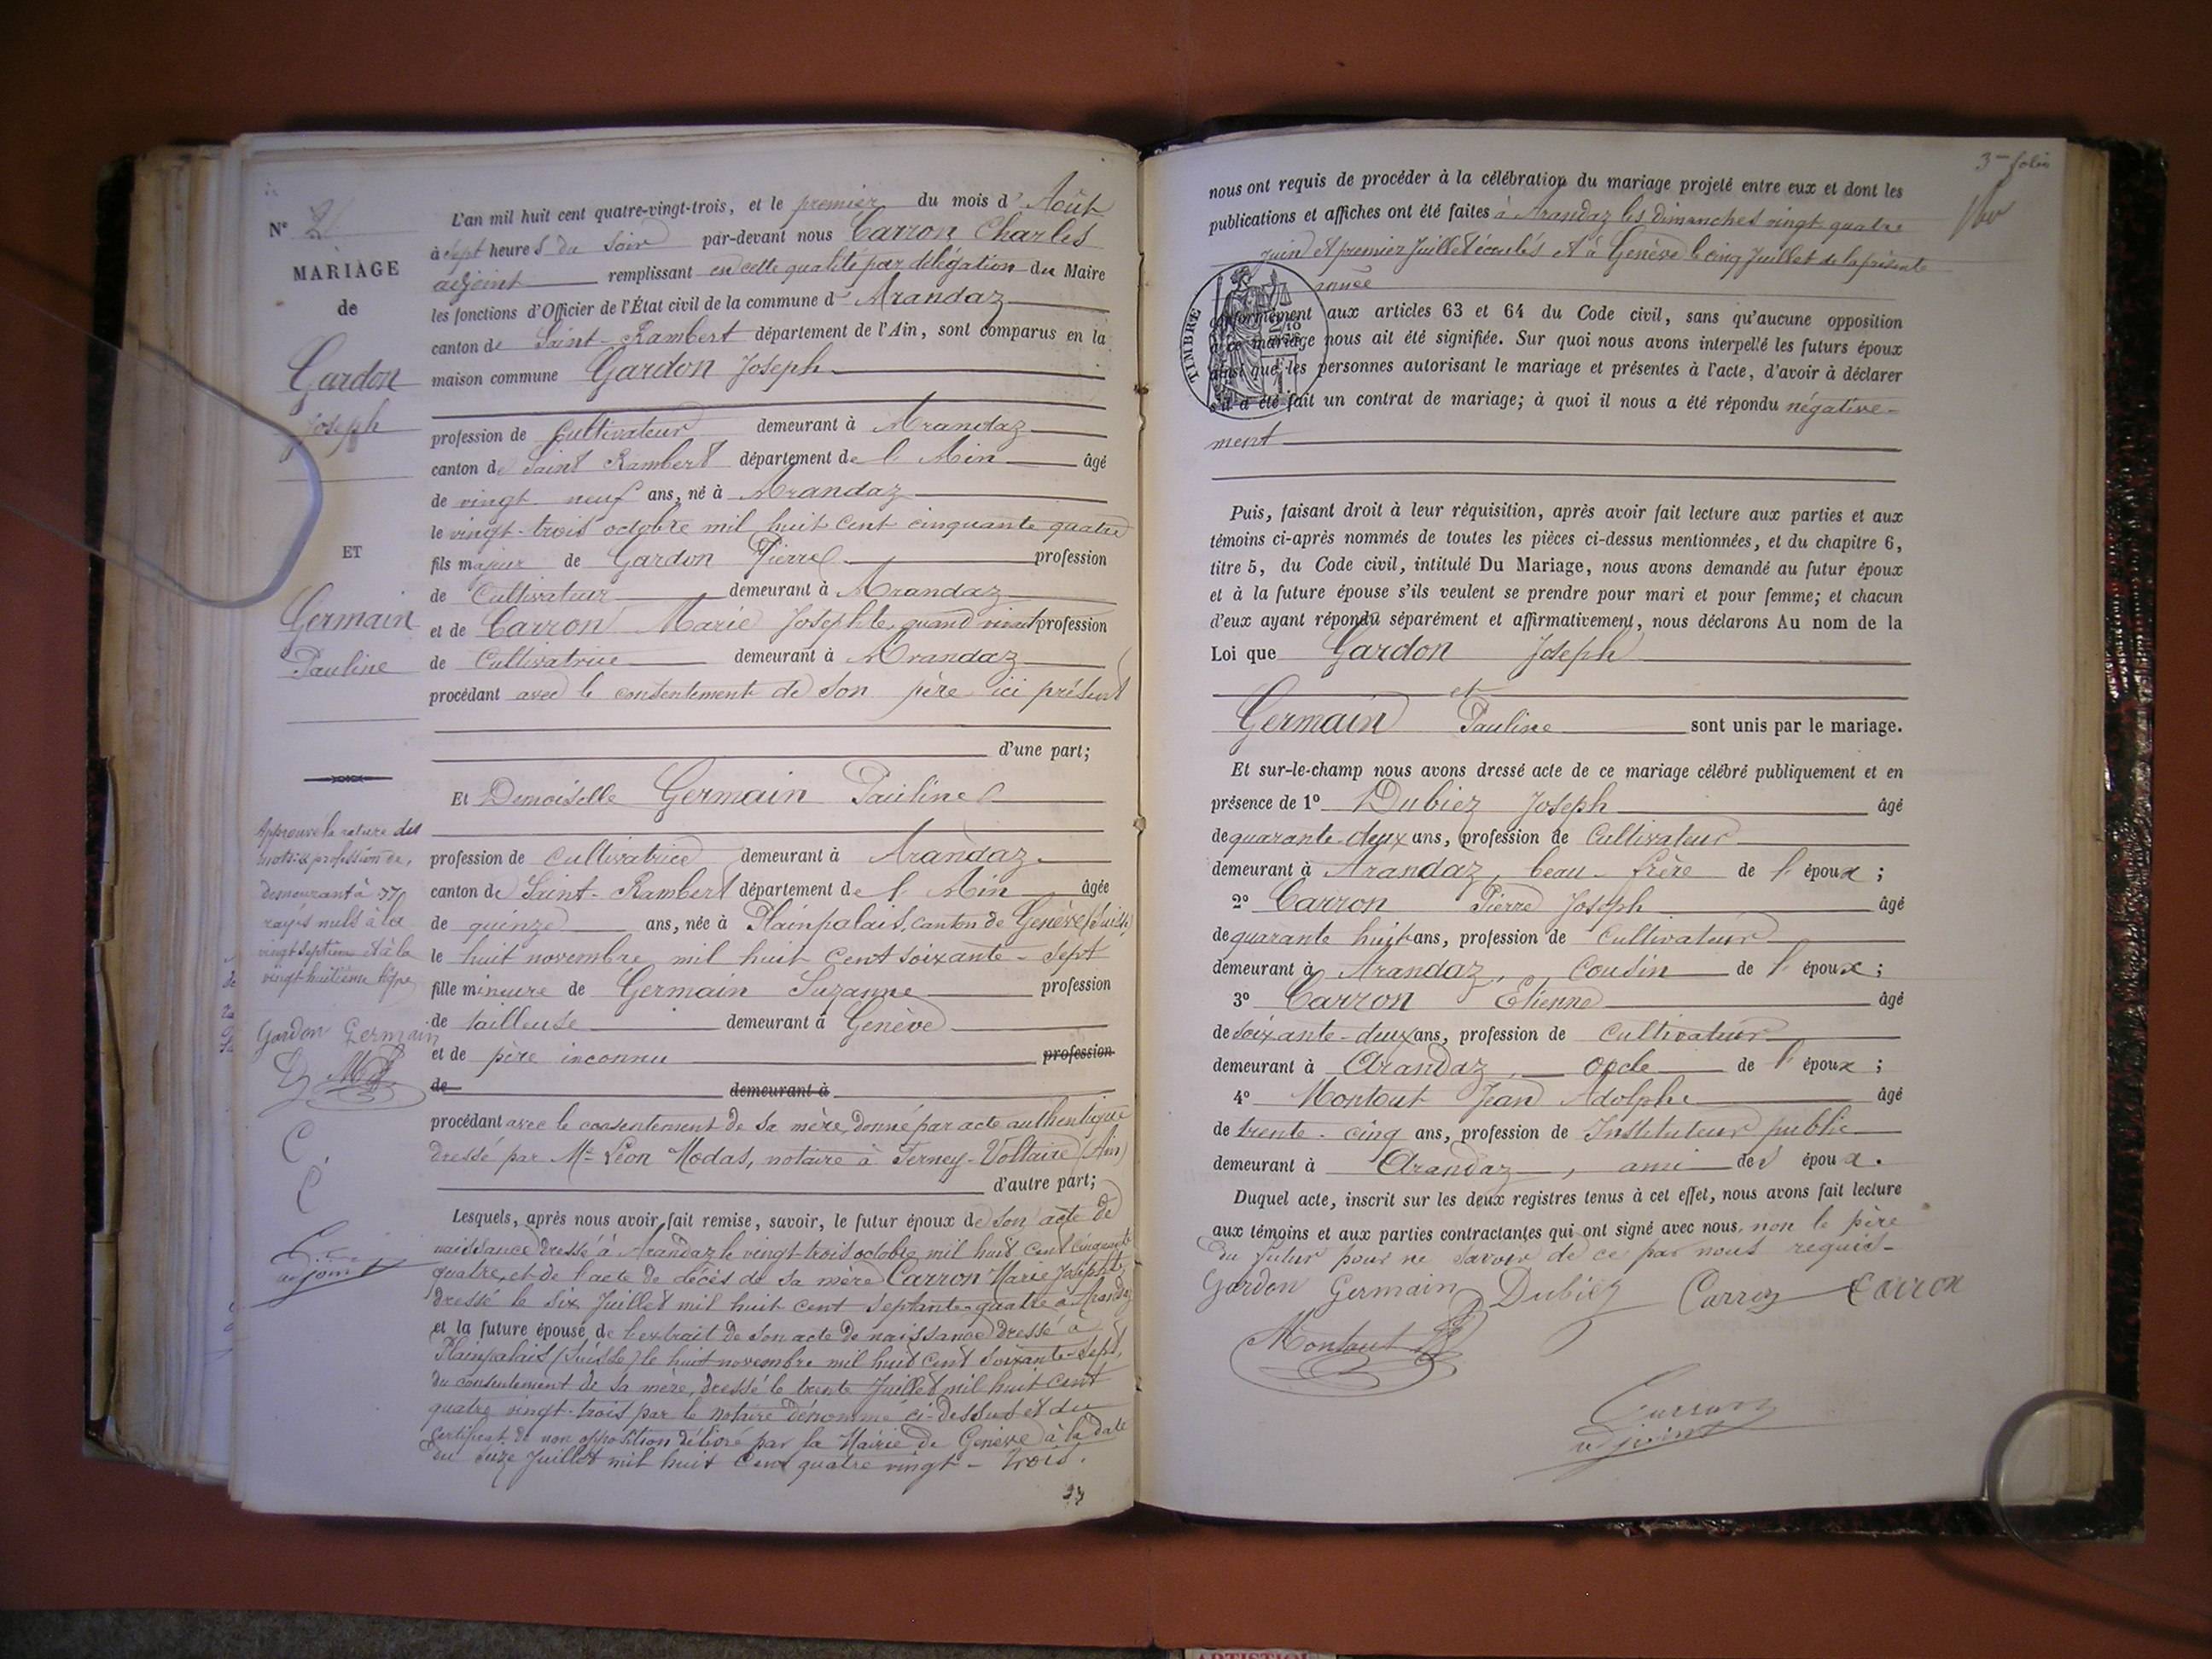 N° 2
MARIAGE
de
Gardon
Joseph
ET
Germain
Pauline
Approuvé la rature des
mots: profession de,
demeurant à
rayés nuls à la
vingt septième et à la
vingt huitième ligne
Gardon Germain
D
C
C
adjoint
L'an mil huit cent quatre-vingt-trois, et le premier du mois d'Août
à sept heures du soir par-devant nous Carron Charles
adjoint remplissant en cette qualité par délégation du Maire
les fonctions d'Officier de l'État civil de la commune d'Arandaz
canton de Saint-Rambert département de l'Ain, sont comparus en la
maison commune Gardon Joseph
profession de Cultivateur demeurant à Arandaz
canton de Saint Rambert département de l'Ain âgé
de vingt neuf ans, né à Arandaz
le vingt-trois octobre mil huit cent cinquante quatre
fils majeur de Gardon Pierre profession
de Cultivateur demeurant à Arandaz
et de Carron Marie Josephte, quand vivait profession
de Cultivatrice demeurant à Arandaz
procédant avec le consentement de son père ici présent
d'une part;
Et Demoiselle Germain Pauline
profession de Cultivatrice demeurant à Arandaz
canton de Saint-Rambert département de l'Ain âgée
de quinze ans, née à Plainpalais, canton de Genève (Suisse)
le huit novembre mil huit cent soixante-sept
fille mineure de Germain Suzanne profession
de tailleuse demeurant à Genève
et de père inconnu profession
de demeurant à
procédant avec le consentement de sa mère, donné par acte authentique
dressé par Me Léon Modas, notaire à Ferney-Voltaire (Ain)
d'autre part;
Lesquels, après nous avoir fait remise, savoir, le futur époux de son acte de
naissance dressé à Arandaz le vingt-trois octobre mil huit cent cinquante
quatre, et de l'acte de décès de sa mère Carron Marie Josephte,
dressé le six Juillet mil huit cent septante-quatre à Arandaz
et la future épouse de l'extrait de son acte de naissance dressé à
Plainpalais (Suisse) le huit novembre mil huit cent soixante-sept,
du consentement de sa mère, dressé le trente Juillet mil huit cent
quatre vingt-trois par le notaire dénommé ci-dessus et du
certificat de non opposition délivré par la Mairie de Genève à la date
du seize Juillet mil huit cent quatre vingt-trois.
27
3me folio
nous ont requis de procéder à la célébration du mariage projeté entre eux et dont les
publications et affiches ont été faites à Arandaz les dimanches vingt-quatre
juin et premier Juillet écoulés et à Genève le cinq Juillet de la présente
année
TIMBRE
conformément aux articles 63 et 64 du Code civil, sans qu'aucune opposition
à ce mariage nous ait été signifiée. Sur quoi nous avons interpellé les futurs époux
ainsi que les personnes autorisant le mariage et présentes à l'acte, d'avoir à déclarer
s'il a été fait un contrat de mariage; à quoi il nous a été répondu négative-
ment
Puis, faisant droit à leur réquisition, après avoir fait lecture aux parties et aux
témoins ci-après nommés de toutes les pièces ci-dessus mentionnées, et du chapitre 6,
titre 5, du Code civil, intitulé Du Mariage, nous avons demandé au futur époux
et à la future épouse s'ils veulent se prendre pour mari et pour femme; et chacun
d'eux ayant répondu séparément et affirmativement, nous déclarons Au nom de la
Loi que Gardon Joseph
et
Germain Pauline sont unis par le mariage.
Et sur-le-champ nous avons dressé acte de ce mariage célébré publiquement et en
présence de 1° Dubiez Joseph âgé
de quarante-deux ans, profession de Cultivateur
demeurant à Arandaz, beau-frère de l'époux;
2° Carron Pierre Joseph âgé
de quarante huit ans, profession de Cultivateur
demeurant à Arandaz, Cousin de l'époux;
3° Carron Étienne âgé
de soixante-deux ans, profession de Cultivateur
demeurant à Arandaz, oncle de l'époux;
4° Montout Jean Adolphe âgé
de trente-cinq ans, profession de Instituteur public
demeurant à Arandaz, ami des époux.
Duquel acte, inscrit sur les deux registres tenus à cet effet, nous avons fait lecture
aux témoins et aux parties contractantes qui ont signé avec nous, non le père
du futur pour ne savoir de ce par nous requis-
Gardon Germain Dubiez Carron Carron
Montout
Carron
adjoint